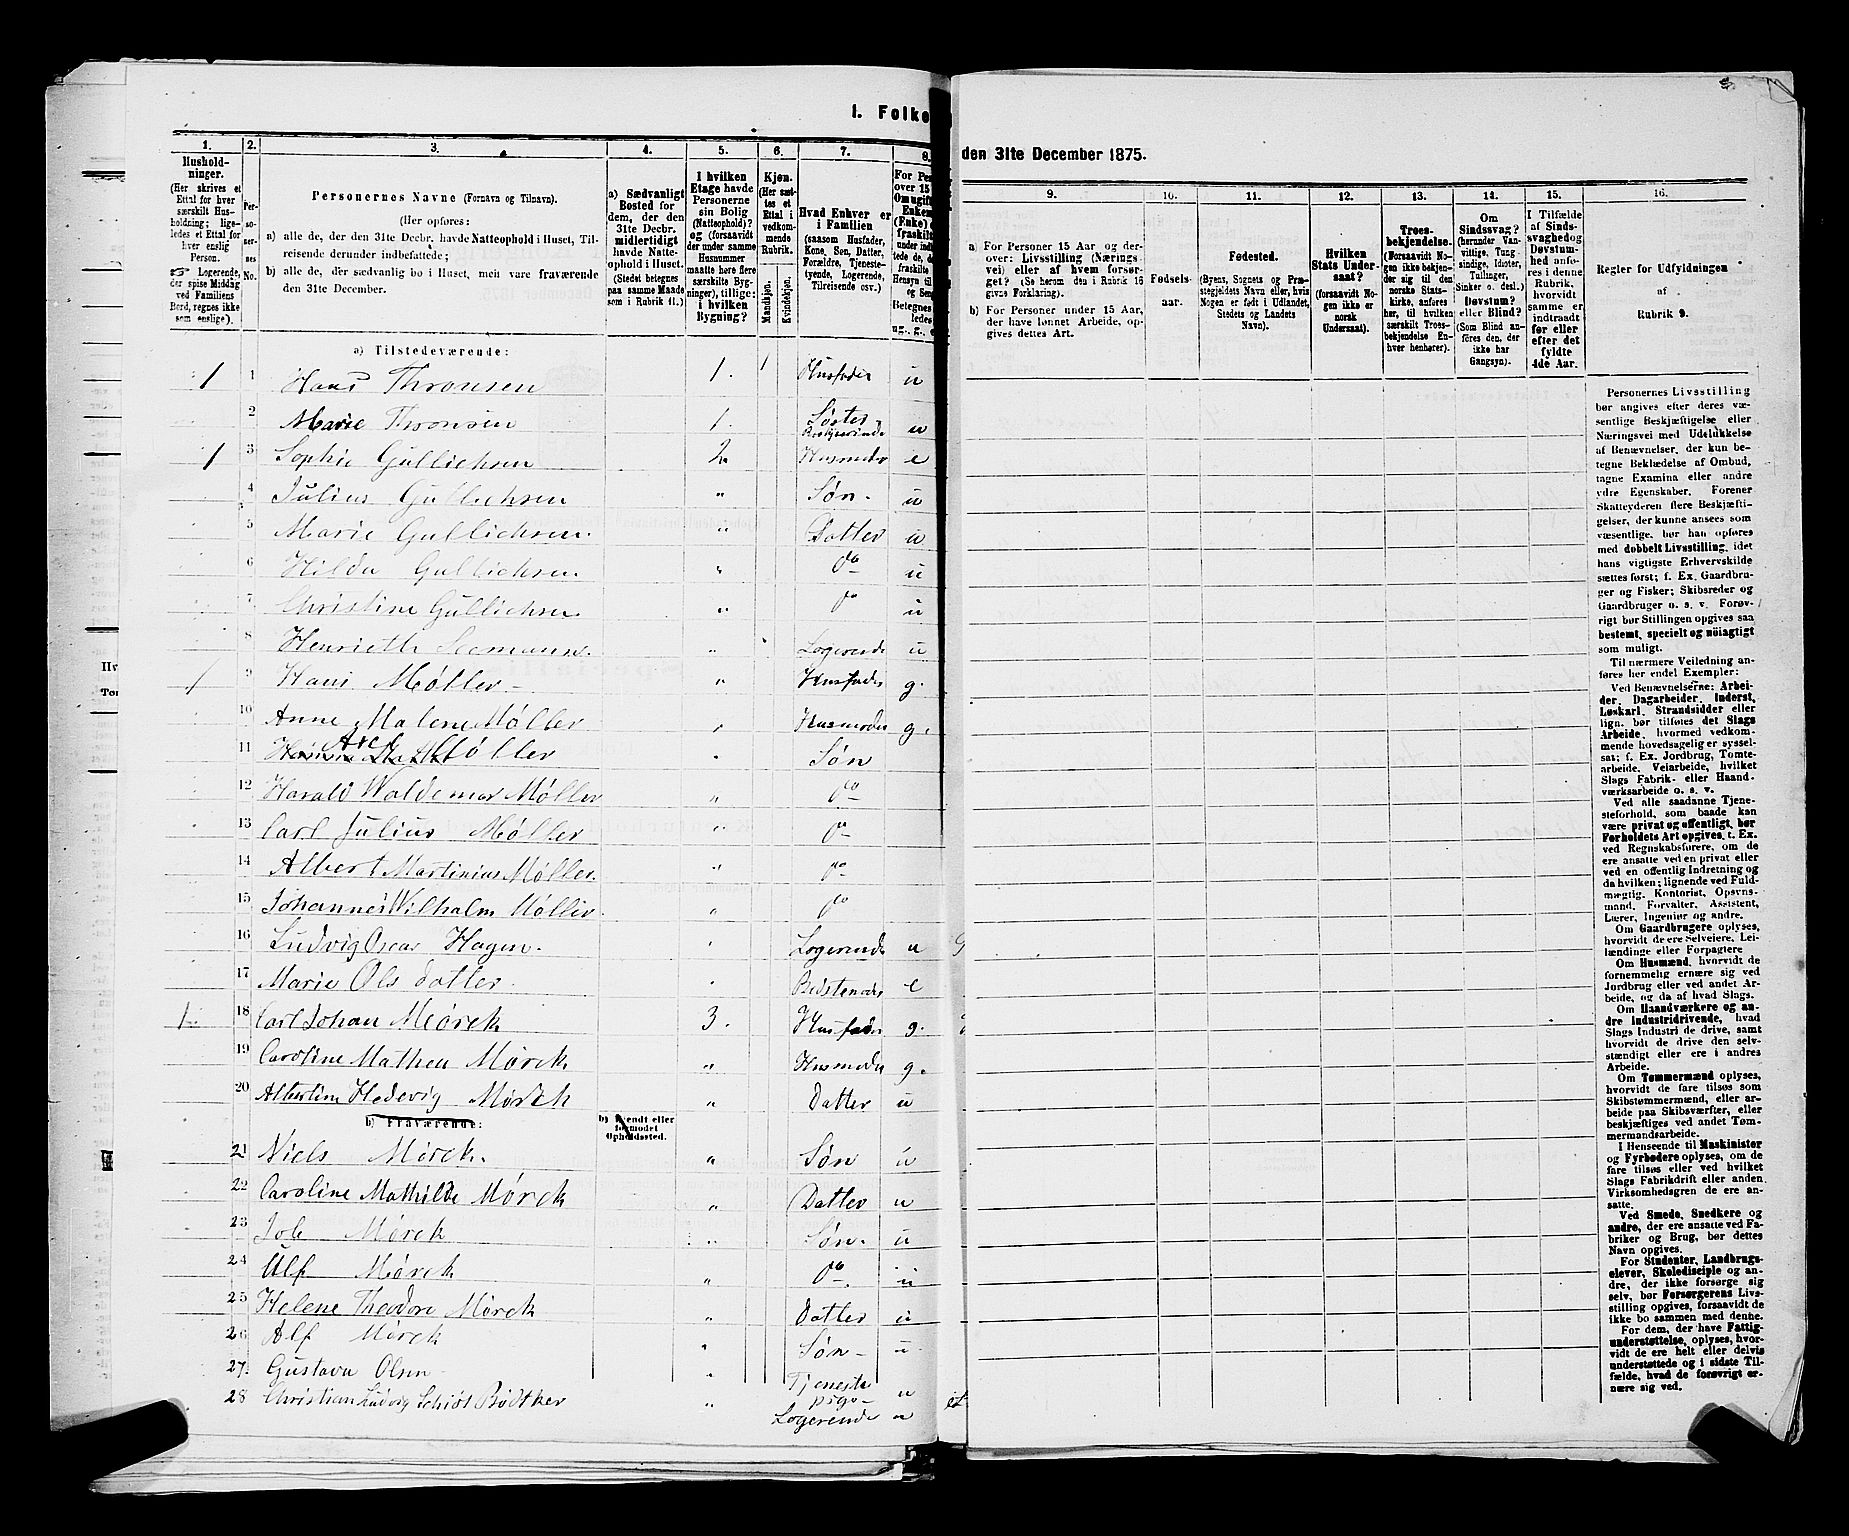 I. Folke
den 31te December 1875.
1.
Hushold-
ninger.
(Her skrives et
Ettal for hver
særskilt Hus-
holdning; lige-
ledes et Ettal for
hver enslig
Person.
☞ Logerende,
der spise Middag
ved Familiens
Bord, regnes ikke
som enslige).
2.
Per-
so-
ner-
nes
No.
3.
Personernes Navne (Fornavn og Tilnavn).
(Her opføres:
a) alle de, der den 31te Decbr. havde Natteophold i Huset, Til-
reisende derunder indbefattede;
b) alle de, der sædvanlig bo i Huset, men vare fraværende
den 31te December.
4.
a) Sædvanligt
Bosted for
dem, der den
31te Decbr.
midlertidigt
havde Natte-
ophold i Huset.
(Stedet betegnes
paa samme Maade
som i Rubrik 11.)
5.
I hvilken
Etage havde
Personerne
sin Bolig
(Natteophold)?
og (forsaavidt
der under samme
Husnummer
maatte høre flere
særskilte Byg-
ninger), tillige:
i hvilken
Bygning?
6.
Kjøn.
(Her sæt-
tes et
Ettal i
vedkom-
mende
Rubrik.)
Mandkjøn.
Kvindekjøn.
7.
Hvad Enhver er
i Familien
(saasom Husfader,
Kone, Søn, Datter,
Forældre, Tjeneste-
tyende, Logerende,
Tilreisende osv.)
8.
For Pe
over 15
Om ugift
Enke
(Enke) e
fraskilt
9.
a) For Personer 15 Aar og der-
over: Livsstilling (Nærings-
vei) eller af hvem forsør-
get? (Se herom den i Rubrik 16
givne Forklaring).
b) For Personer under 15 Aar,
der have lønnet Arbeide, op-
gives dettes Art.
10.
Fødsels-
aar.
11.
Fødested.
(Byens, Sognets og Præ-
stegjeldets Navn eller, hvis
Nogen er født i Udlandet,
Stedets og Landets
Navn).
12.
Hvilken
Stats Under-
saat?
(forsaavidt No-
gen ikke er
norsk
Undersaat).
13.
Troes-
bekjendelse.
(Forsaavidt No-
gen ikke bekjen-
der sig til den
norske Stats-
kirke, anføres
her, til hvilken
særskilt Troes-
bekjendelse En-
hver henhører).
14.
Om
Sindssvag?
(herunder Van-
vittige, Tung-
sindige, Idioter,
Tullinger,
Sinker o. desl.)
Døvstum?
eller Blind?
(Som Blind an-
føres den, der
ikke har
Gangsyn).
15.
I Tilfælde
af Sinds-
svaghed og
Døvstum-
hed anfø-
res i denne
Rubrik,
hvorvidt
samme er
indtraadt
før eller
efter det
fyldte
4de Aar.
16.
Regler for Udfyldningen
af
Rubrik 9.
a) Tilstedeværende:
1 1 Hans Thronsen 1. 1 Husfader u
2 Marie Thronsen 1. Søster Bestyrerinde u
1 3 Sophie Gullichsen 2. Husmoder e
4 Julius Gullichsen " Søn u
5 Marie Gullichsen " Datter u
6 Hilda Gullichsen " do u
7 Christine Gullichsen " do u
8 Henriette Seemann " Logerende u
1 9 Hans Møller " Husfader g.
10 Anne Malene Møller " Husmoder g.
11 Axel Møller " Søn
12 Harald Waldemar Møller " do
13 Carl Julius Møller " do
14 Albert Martinius Møller " do
15 Johannes Wilhelm Møller " do
16 Ludvig Oscar Hagen " Logerende u
17 Marie Olsdatter " Bedstemoder e
1 18 Carl Johan Mørck 3. Husfader g.
19 Caroline Mathea Mørck " Husmoder g.
20 Albertine Hedevig Mørck " Datter u
b) Fraværende:
b) Kjendt eller
formodet
Opholdssted.
21 Niels Mørck. " Søn u
22 Caroline Mathilde Mørck " Datter u
23 Job Mørck " Søn u
24 Ulf Mørck " do u
25 Helene Theodore Mørck " Datter u
26 Alf Mørck " Søn u
27. Gustava Olsen " Tjeneste pige u
28 Christian Ludvig Schiøt Bødtker " Logerende u
Personernes Livsstilling
bør angives efter deres væ-
sentlige Beskjæftigelse eller
Næringsvei med Udelukkelse
af Benævnelser, der kun be-
tegne Beklædelse af Ombud,
tagne Examina eller andre
ydre Egenskaber. Forener
Skatteyderen flere Beskjæfti-
gelser, der kunne ansees som
væsentlige, bør han opføres
med dobbelt Livsstilling, idet
hans vigtigste Erhvervskilde
sættes først; f. Ex. Gaardbru-
ger og Fisker; Skibsreder og
Gaardbruger o. s. v. Forøv-
rigt bør Stillingen opgives saa
bestemt, specielt og nøiagtigt
som muligt.
Til nærmere Veiledning an-
føres her endel Exempler:
Ved Benævnelserne: Arbei-
der, Dagarbeider, Inderst,
Løskarl, Strandsidder eller
lign. bør tilføies det Slags
Arbeide, hvormed vedkom-
mende hovedsagelig er syssel-
sat; f. Ex. Jordbrug, Tomte-
arbeide, Veiarbeide, hvilket
Slags Fabrik- eller Haand-
værksarbeide o. s. v.
Ved alle saadanne Tjene-
steforhold, som baade kan
være privat og offentligt, bør
Forholdets Art opgives, t. Ex.
ved Regnskabsførere, om de
ere ansatte ved en privat eller
ved en offentlig Indretning og
da hvilken; lignende ved Fuld-
mægtig, Kontorist, Opsyns-
mand, Forvalter, Assistent,
Lærer, Ingeniør og andre.
Om Gaardbrugere oplyses,
hvorvidt de ere Selveiere, Lei-
lændinge eller Forpagtere
Om Husmænd, hvorvidt de
fornemmelig ernære sig ved
Jordbrug eller ved andet Ar-
beide, og da af hvad Slags.
Om Haandværkere og an-
dre industridrivende, hvad
Slags Industri de drive, samt
hvorvidt de drive den selv-
stændigt eller ere i andres
Arbeide.
Om Tømmermænd oplyses,
hvorvidt de fare tilsøs som
Skibstømmermænd, eller ar-
beide paa Skibsværfter, eller
beskjæftiges ved andet Tøm-
mermandsarbeide.
I Henseende til Maskinister
og Fyrbødere oplyses, om de
fare tilsøs eller ved hvilket
Slags Fabrikdrift eller anden
Virksomhedsgren de ere an-
satte.
Ved Smede, Snedkere og
andre, der ere ansatte ved Fa-
briker og Brug, bør dettes
Navn opgives.
For Studenter, Landbrugs-
elever, Skoledisciple og an-
dre, der ikke forsørge sig
selv, bør Forsørgerens Livs-
stilling opgives, forsaavidt de
ikke bo sammen med denne.
For dem, der have Fattig-
understøttelse, oplyses, hvor-
vidt de ere helt eller delvis
understøttede og i sidste Til-
fælde, hvad de forøvrigt er-
nære sig ved.